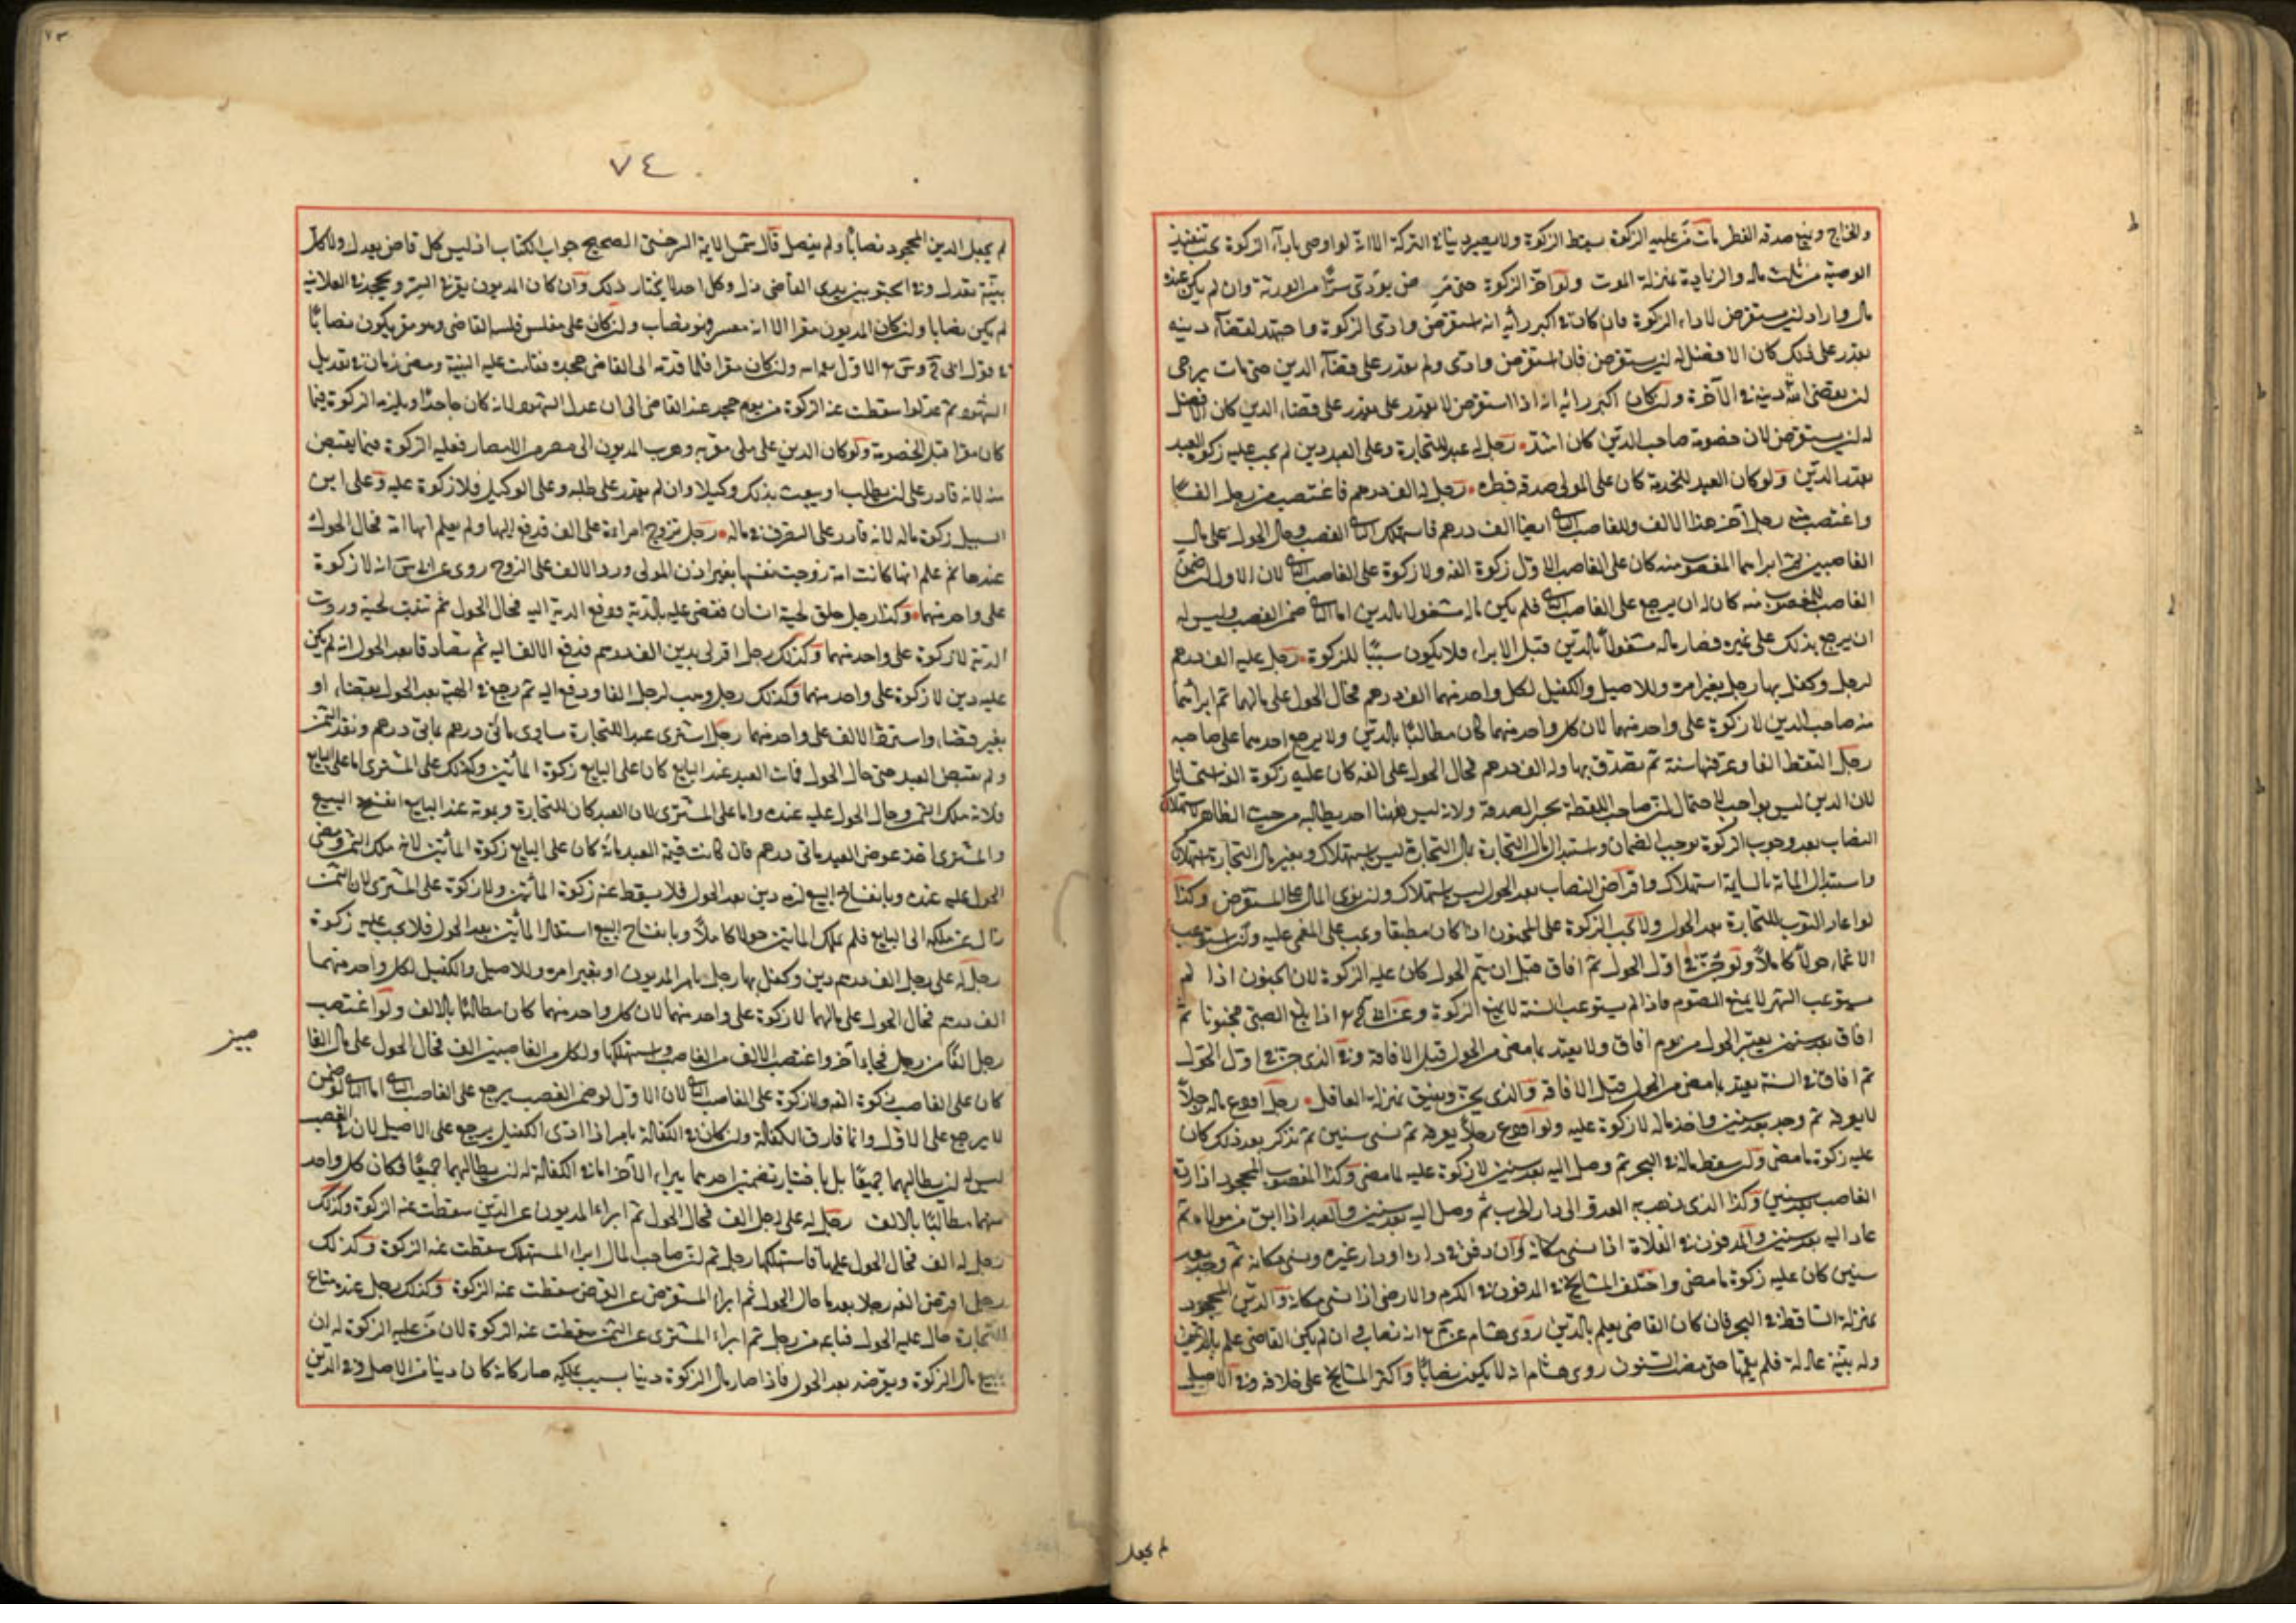 والخراج ويمنع صدقة الفطر مات من عليه الزكوة سقط الزكوة ولا يصير دينا في التركة الا انه لو اوصى باداء الزكوة يجب تنفيذ
الوصية من ثلث ماله والزيادة بمنزلة الموت ولو اخر الزكوة حتى مرض يؤدى سرا من الورثة وان لم يكن عنده
مال واراد ان يستقرض لاداء الزكوة فان كان في اكبر رأيه انه استقرض وادى الزكوة واجتهد لقضاء دينه
يقدر على ذلك كان الافضل له ان يستقرض فان استقرض وادى ولم يقدر على قضاء الدين حتى مات يرجى
ان يقضى الله دينه في الآخرة وان كان اكبر رأيه انه اذا استقرض لا يقدر على قضاء الدين كان الافضل
له ان لا يستقرض لان خصومة صاحب الدين كان اشد رجل له عبد للتجارة وعلى العبد دين لم يجب عليه زكوة العبد
بقدر الدين ولو كان العبد للخدمة كان على المولى صدقة فطره رجل له الف درهم فاغتصب من رجل الفا
واغتصب منه رجل آخر هذا الالف وللغاصب الثاني ايضا الف درهم فاستهلك الثاني الغصب وحال الحول على مال
الغاصبين ثم ابراهما المغصوب منه كان على الغاصب الاول زكوة الفه ولا زكوة على الغاصب الثاني لان الاول ان ضمن
الغاصب للمغصوب منه كان له ان يرجع على الغاصب الثاني فلم يكن ماله مشغولا بالدين اما الثاني ضمن الغصب وليس له
ان يرجع بذلك على غيره فصار ماله مشغولا بالدين قبل الابراء فلا يكون سببا للزكوة رجل عليه الف درهم
لرجل وكفل بها رجل بغير امره وللاصيل والكفيل لكل واحد منهما الف درهم فحال الحول على مالهما ثم ابرأهما
منه صاحب الدين لا زكوة على واحد منهما لان كل واحد منهما كان مطالبا بالدين ولا يرجع احدهما على صاحبه
رجل التقط الفا وعرفها سنة ثم تصدق بها وله الف درهم فحال الحول على الفه كان عليه زكوة الفه استحسانا
لان الدين ليس بواجب لاحتمال ان صاحب اللقطة يجيز الصدقة ولانه ليس ههنا احد يطالبه من حيث الظاهر استهلاك
النصاب بعد وجوب الزكوة يوجب الضمان واستبدال مال التجارة بمال التجارة ليس باستهلاك وبغير مال التجارة استهلاك
واستبدال السايمة بالسايمة استهلاك واقراض النصاب بعد الحول ليس باستهلاك وان توى المال على المستقرض وكذا
لو اعار الثوب للتجارة بعد الحول ولا تجب الزكوة على المجنون اذا كان مطبقا وتجب على المغمى عليه وان استوعب
الاغماء حولا كاملا ولو جن في اول الحول ثم افاق قبل ان يتم الحول كان عليه الزكوة لان الجنون اذا لم
يستوعب الشهر لا يمنع الصوم فاذا لم يستوعب السنة لا يمنع الزكوة وعن اذا بلغ الصبى مجنونا ثم
افاق بعد سنين يعتبر الحول من يوم افاق ولا يعتد بما مضى من الحول قبل الافاقة وفي الذى جن في اول الحول
ثم افاق في السنة يعتد بما مضى من الحول قبل الافاقة والذى يجن ويفيق بمنزلة العاقل رجل اودع ماله رجلا
لا يعرفه ثم وجده بعد سنين واخذ ماله لا زكوة عليه ولو اودع رجلا يعرفه ثم نسى سنين ثم تذكر بعد ذلك كان
عليه زكوة ما مضى وان سقط ماله في البحر ثم وصل اليه بعد سنين لا زكوة عليه لما مضى وكذا المغصوب المجحود اذا رده
الغاصب بعد سنين وكذا الذى ذهب به العدو الى دار الحرب ثم وصل اليه بعد سنين والعبد اذا ابق من مولاه ثم
عاد اليه بعد سنين والمدفون في الفلاة اذا نسى مكانه وان دفن في داره او دار غيره ونسى مكانه ثم وجده بعد
سنين كان عليه زكوة ما مضى واختلف المشايخ في المدفون في الكرم والارض اذا نسى مكانه والدين المجحود
بمنزلة الساقط في البحر فان كان القاضى يعلم بالدين روى هشام عن انه نصاب وان لم يكن القاضى علم بالدين
وله بينة عادلة فلم يقمها حتى مضت السنون روى هشام انه لا يكون نصابا واكثر المشايخ على خلافه وفي الاصل
لم يجعل
٧٣
٧٤
لم يجعل الدين المجحود نصابا ولم يفصل قال شمس الايمة السرخسى الصحيح جواب الكتاب اذ ليس كل قاض يعدل ولا كل
بينة تعدل وفي الجثو بين يدى القاضى ذل وكل احد لا يختار ذلك وان كان المديون يقر في السر ويجحد في العلانية
لم يكن نصابا وان كان المديون مقرا الا انه معسر فهو نصاب وان كان على مفلس فلسه القاضى وهو مقر يكون نصابا
في قول ولن كان مقرا فلما قدمه الى القاضى جحده فقامت عليه البينة ومضى زمان في تعديل
الشهود ثم عدلوا سقطت عنه الزكوة من يوم جحد عند القاضى الى ان عدل الشهود لانه كان جاحدا ويلزمه الزكوة فيما
كان مقرا قبل الخصومة ولو كان الدين على ملى مقر به وهرب المديون الى مصر من الامصار فعليه الزكوة فيما يقبض
منه لانه قادر على ان يطلب او يبعث بذلك وكيلا وان لم يقدر على طلبه وعلى الوكيل فلا زكوة عليه وعلى ابن
السبيل زكوة ماله لانه قادر على التصرف في ماله رجل تزوج امراءة على الف فدفع اليها ولم يعلم انها امة فحال الحول
عندها ثم علم انها كانت امة زوجت نفسها بغير اذن المولى ورد الالف على الزوج روى عن انه لا زكوة
على واحد منهما وكذا رجل حلق لحية انسان فقضى عليه بالدية ودفع الدية اليه فحال الحول ثم نبتت لحيته وردت
الدية لا زكوة على واحد منهما وكذلك رجل اقر لرجل بدين الف درهم فدفع الالف اليه ثم تصادقا بعد الحول انه لم يكن
عليه دين لا زكوة على واحد منهما وكذلك رجل وهب لرجل الفا ودفع اليه ثم رجع في الهبة بعد الحول بقضاء او
بغير قضاء واسترد الالف على واحد منهما رجل اشترى عبدا للتجارة يساوى مأتى درهم بمأتى درهم ونقد الثمن
ولم يقبض العبد حتى حال الحول فمات العبد عند البايع كان على البايع زكوة المأتين وكذلك على المشترى اما على البايع
فلانه ملك الثمن وحال الحول عليه عنده واما على المشترى لان العبد كان للتجارة وبموته عند البايع انفسخ البيع
والمشترى اخذ عوض العبد مأتى درهم فان كانت قيمة العبد مائة كان على البايع زكوة المأتين لانه ملك الثمن ومضى
الحول عليه عنده وبانفساخ البيع لزمه دين بعد الحول فلا يسقط عنه زكوة المأتين ولا زكوة على المشترى لان الثمن
زال عن ملكه الى البايع فلم يملك المأتين حولا كاملا وبانفساخ البيع استفاد المأتين بعد الحول فلا تجب عليه زكوة
رجل له على رجل الف درهم دين وكفل بها رجل بامر المديون او بغير امره وللاصيل والكفيل لكل واحد منهما
الف درهم فحال الحول على مالهما لا زكوة على واحد منهما لان كل واحد منهما كان مطالبا بالالف ولو اغتصب
رجل الفا من رجل فجاء آخر واغتصب الالف من الغاصب واستهلكها ولكل من الغاصبين الف فحال الحول على مال الغا
صبين
كان على الغاصب زكوة الفه ولا زكوة على الغاصب الثاني لان الاول لو ضمن الغصب يرجع على الغاصب الثاني اما الثاني لو ضمن
لا يرجع على الاول وانما فارق الكفالة وان كان في الكفالة بامر اذا ادى الكفيل يرجع على الاصيل لان في الغصب
ليس له ان يطالبهما جميعا بل باختيار تضمين احدهما يبراء الآخر اما في الكفالة له ان يطالبهما جميعا فكان كل واحد
منهما مطالبا بالالف رجل له على رجل الف فحال الحول ثم ابراء المديون عن الدين سقطت عنه الزكوة وكذلك
رجل له الف فحال الحول عليها فاستهلكها رجل ثم ان صاحب المال ابراء المستهلك سقطت عنه الزكوة وكذلك
رجل اقرض الفه رجلا بعد ما حال الحول ثم ابراء المستقرض عن القرض سقطت عنه الزكوة وكذلك رجل عنده متاع
للتجارة حال عليه الحول فباعه من رجل ثم ابراء المشترى عن الثمن سقطت عنه الزكوة لان من عليه الزكوة له ان
يبيع مال الزكوة ويقرضه بعد الحول فاذا صار مال الزكوة دينا بسبب يملكه صار كانه كان دينا من الاصل وفي الدين